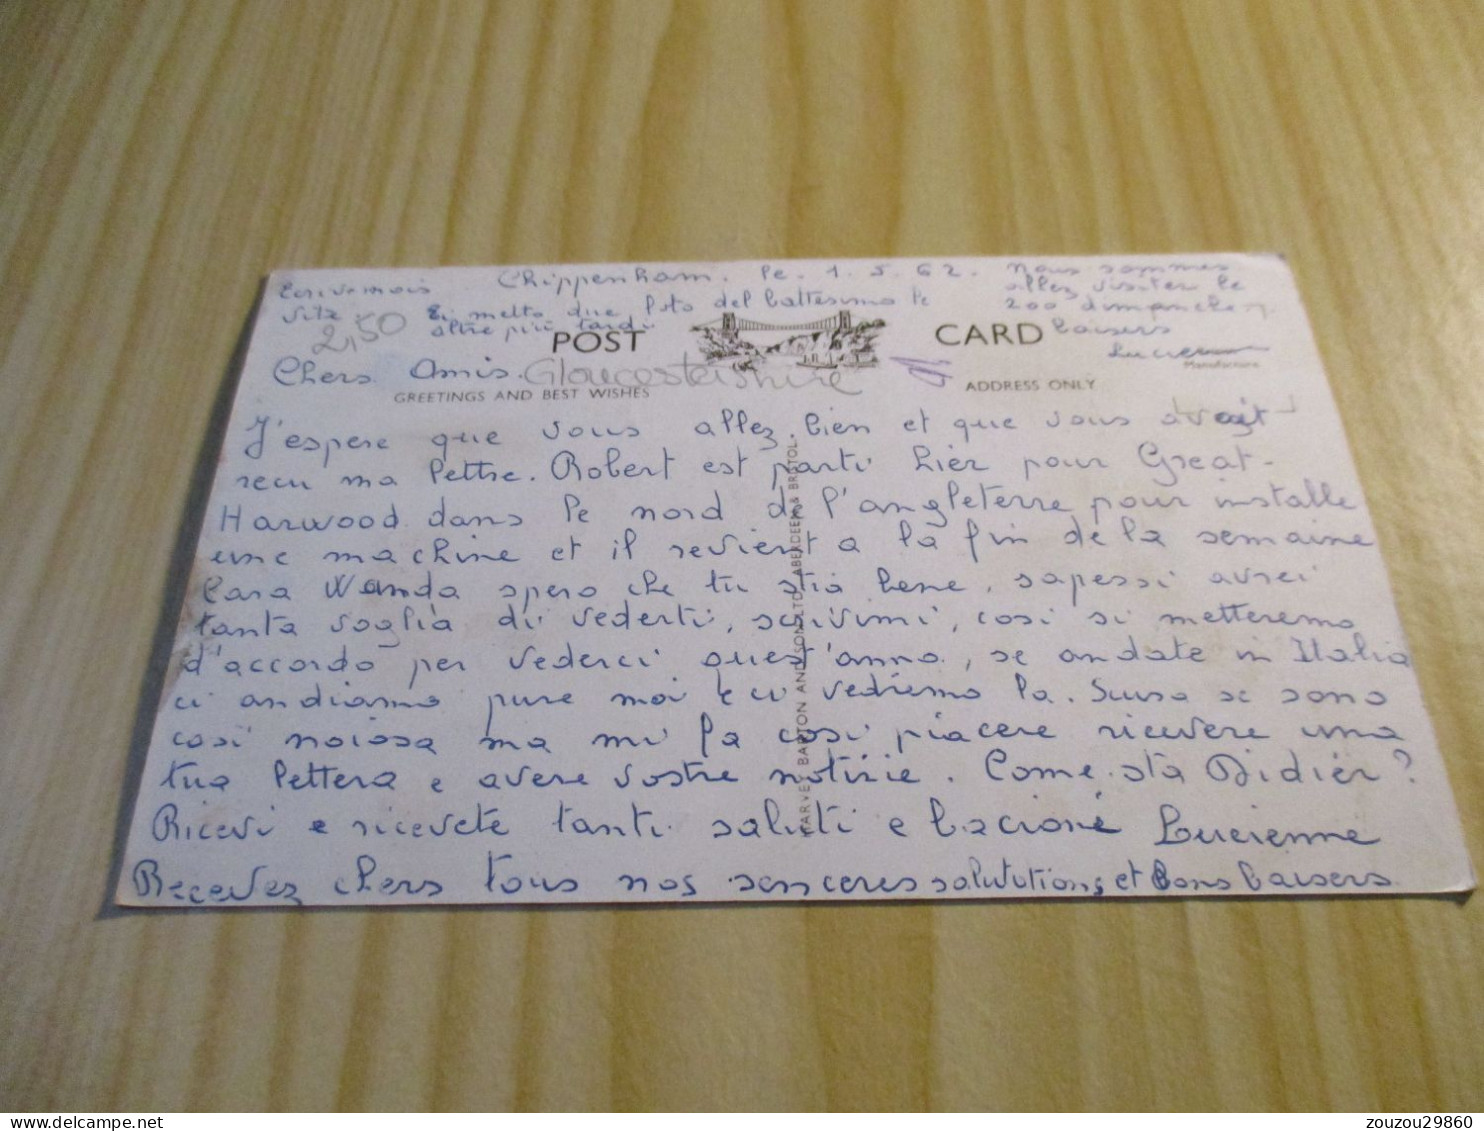 Chippenham. le. 1.5.62. Nous sommes
Ecrivemois
vite
Ti metto due foto del battesimo le
altre più tardi
allez visiter le
zoo dimanche
baisers
Lucienne
2,50
POST CARD
Manufacture
Chers Amis. Gloucestershire
GREETINGS AND BEST WISHES
ADDRESS ONLY
J'espere que vous allez bien et que vous avait
recu ma lettre. Robert est parti hier pour Great-
Harwood dans le nord de l'angleterre pour installe
une machine et il revient a la fin de la semaine
Cara Wanda spero che tu stia bene, sapessi avrei
tanta voglia di vederti, scrivimi, cosi si metteremo
d'accordo per vederci quest'anno, se andate in Italia
ci andiamo pure noi e ci vedremo la. Scusa se sono
cosi noiosa ma mi fa cosi piacere ricevere una
tua lettera e avere vostre notizie. Come sta Didier?
Ricevi e ricevete tanti saluti e bacioni Lucienne
Recevez chers tous nos sinceres salutations et bons baisers
HARVEY BARTON AND SON LTD ABERDEEN & BRISTOL.
zouzou29860